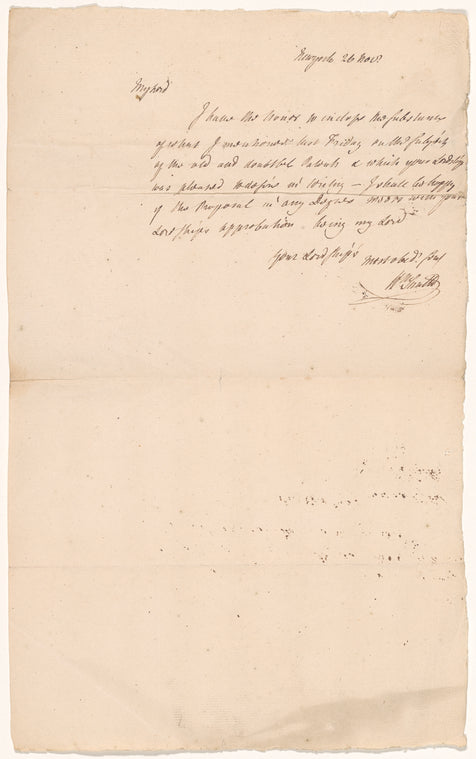 Newyork 26 Nov.r
My Lord
I have the honor to inclose the substance
of what I mentioned last Friday on the subject
of the old and doubtful Patents & which your Lordship
was pleased to desire in writing – I shall be happy
if the Proposal in any Degree meets with your
Lordships approbation being my Lord
Your Lordship's most obed.t Serv.t
W.m